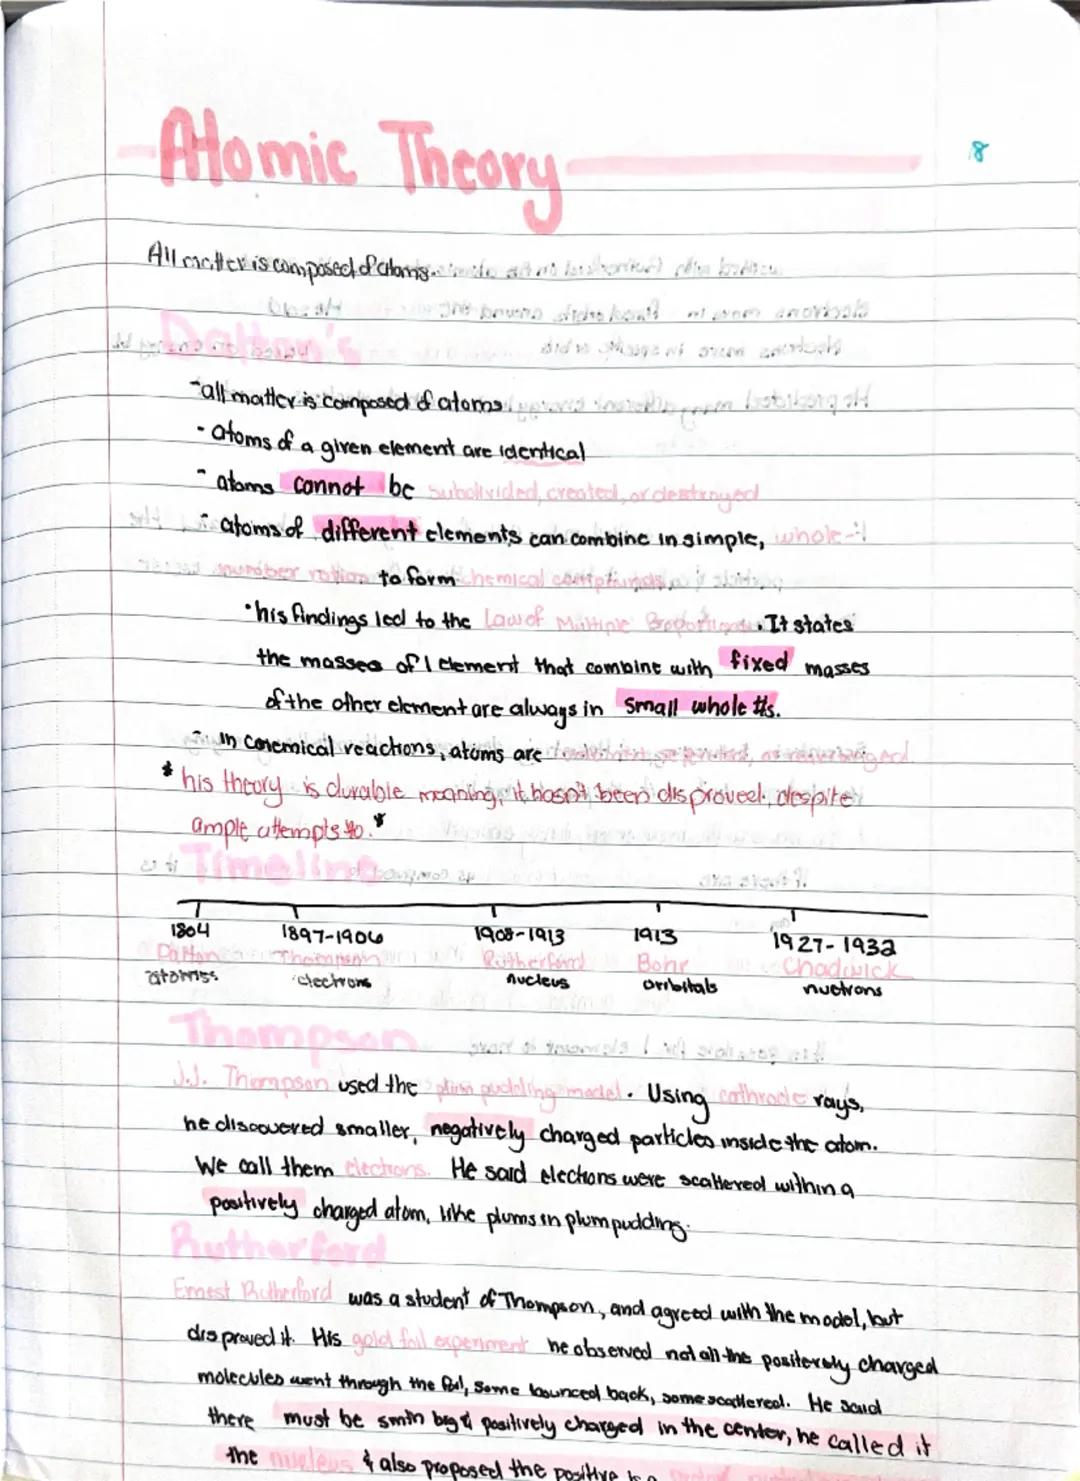 Atomic Theory
8
All matter is composed of atoms.
Dalton's
-all matter is composed of atoms
- atoms of a given element are identical
- atoms cannot be subdivided, created, or destroyed
- atoms of different elements can combine in simple, whole-
number ratios to form chemical compounds
•his findings led to the Law of Multiple Proportions. It states
the masses of 1 element that combine with fixed masses
of the other element are always in small whole #s.
- in chemical reactions, atoms are combined, separated, or rearranged
* his theory is durable meaning, it hasn't been disproved, despite
ample attempts to.*
Timeline
1804 1897-1906 1908-1913 1913 1927-1932
Dalton Thompson Rutherford Bohr Chadwick
atomss electrons nucleus orrbitals nuetrons
Thompson
J.J. Thompson used the plum pudding model. Using cathrode rays,
he discovered smaller, negatively charged particles inside the atom.
We call them electrons. He said electrons were scattered within a
positively charged atom, like plums in plum pudding.
Rutherford
Ernest Rutherford was a student of Thompson, and agreed with the model, but
disproved it. His gold foil experiment he observed not all the positevely charged
molecules went through the foil, some bounced back, some scattered. He said
there must be smth big & positively charged in the center, he called it
the nucleus & also proposed the positive is a